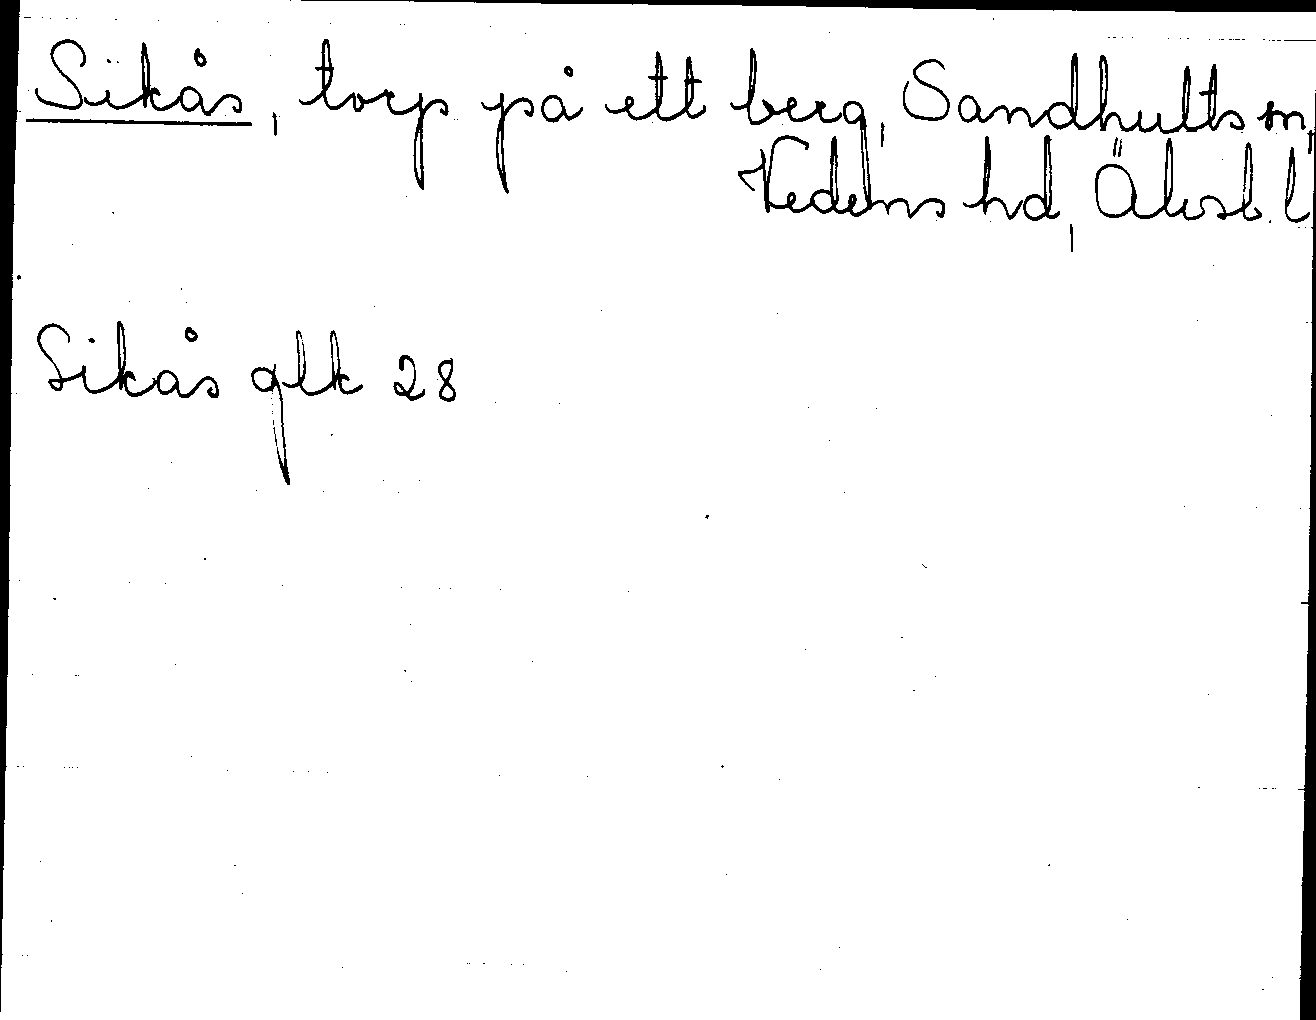 Sikås, torp på ett berg, Sandhults sn,
Vedens hd, Älvsb. l
Sikås glk 28